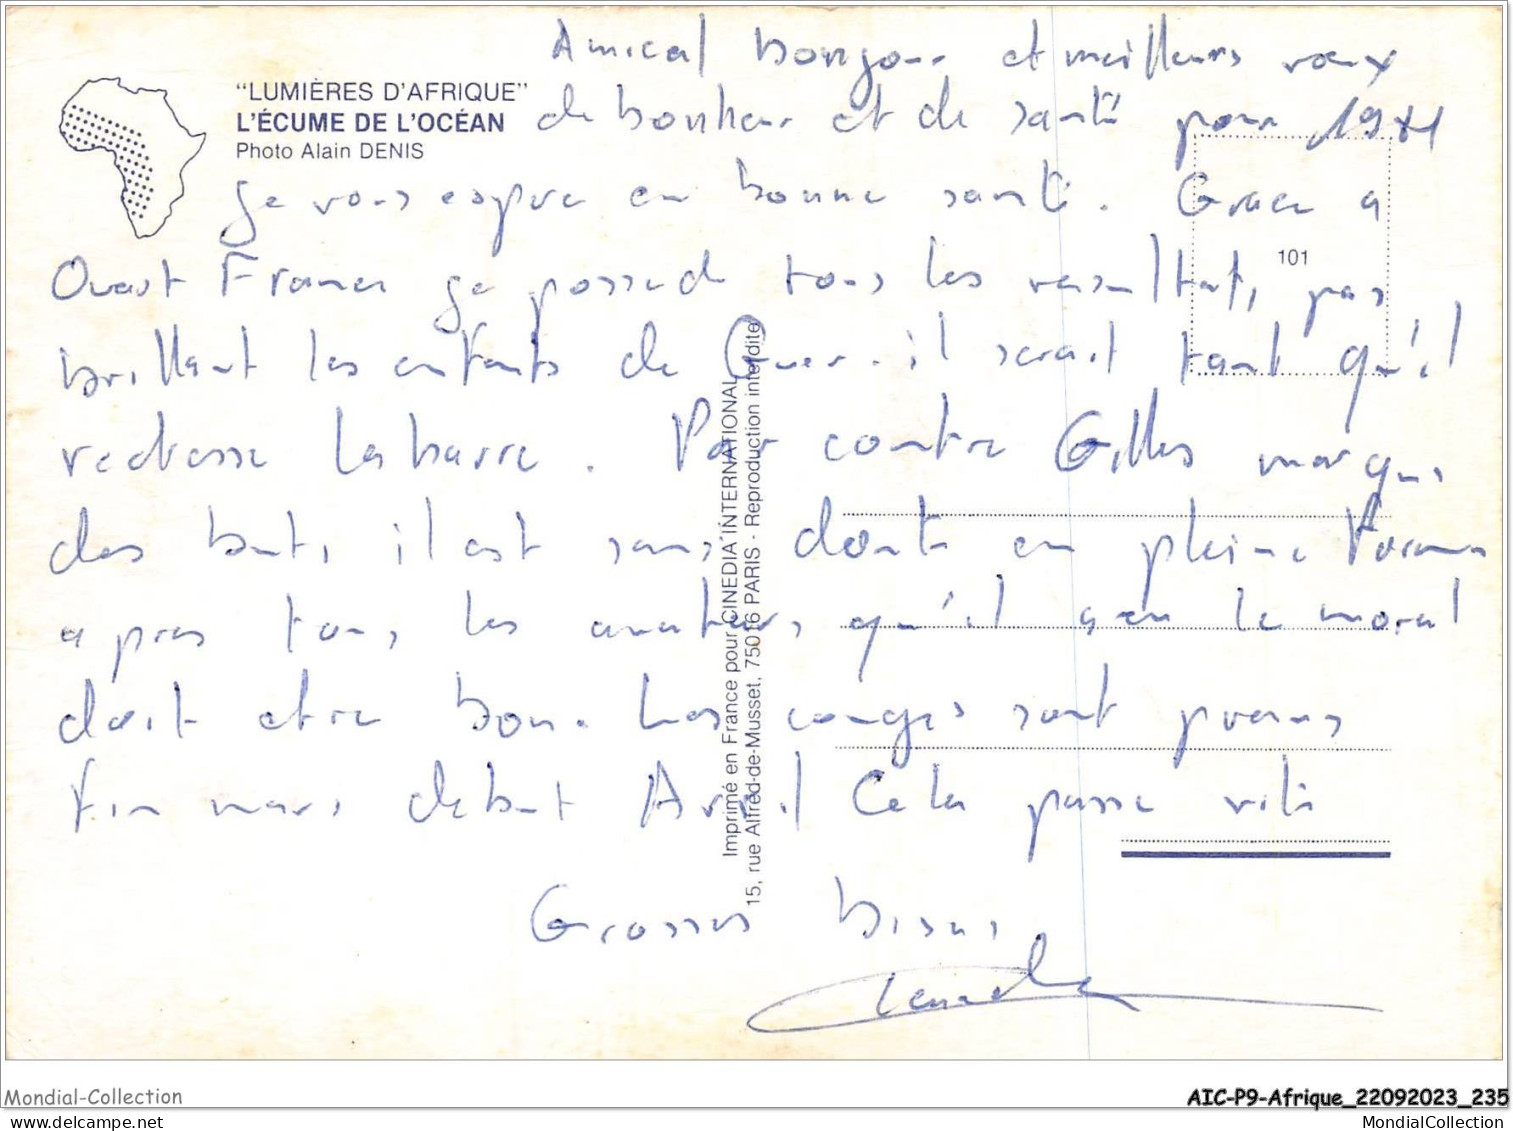 Amical bonjour et meilleurs voeux
"LUMIÈRES D'AFRIQUE"
L'ÉCUME DE L'OCÉAN
Photo Alain DENIS
de bonheur et de santé pour 1981
je vous espere en bonne santé. Grace a
Ouest France je possede tous les resultats, pas
101
brillant les enfants de Guer. il serait tant qu'il
redresse la barre. Par contre Gilles marque
des buts, il est sans doute en pleine Forme
apres tous les qu'il a en le moral
doit etre bon. Les conges sont prevus
Fin mars debut Avril Cela passe vite
Grosses Bises
Imprimé en France pour CINEDIA INTERNATIONAL
15, rue Alfred-de-Musset, 75016 PARIS - Reproduction interdite
Mondial-Collection
AIC-P9-Afrique_22092023_235
https://www.delcampe.net
MondialCollection